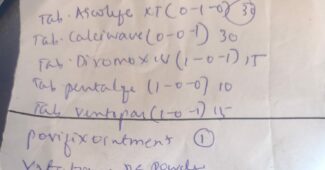 Tab. Ascolife XT (0-1-0) 30
Tab. Calciwave (0-0-1) 30
Tab. (1-0-1) 15
Tab pentalge (1-0-0) 10
Tab (1-0-1) 15
povifix ointment 1